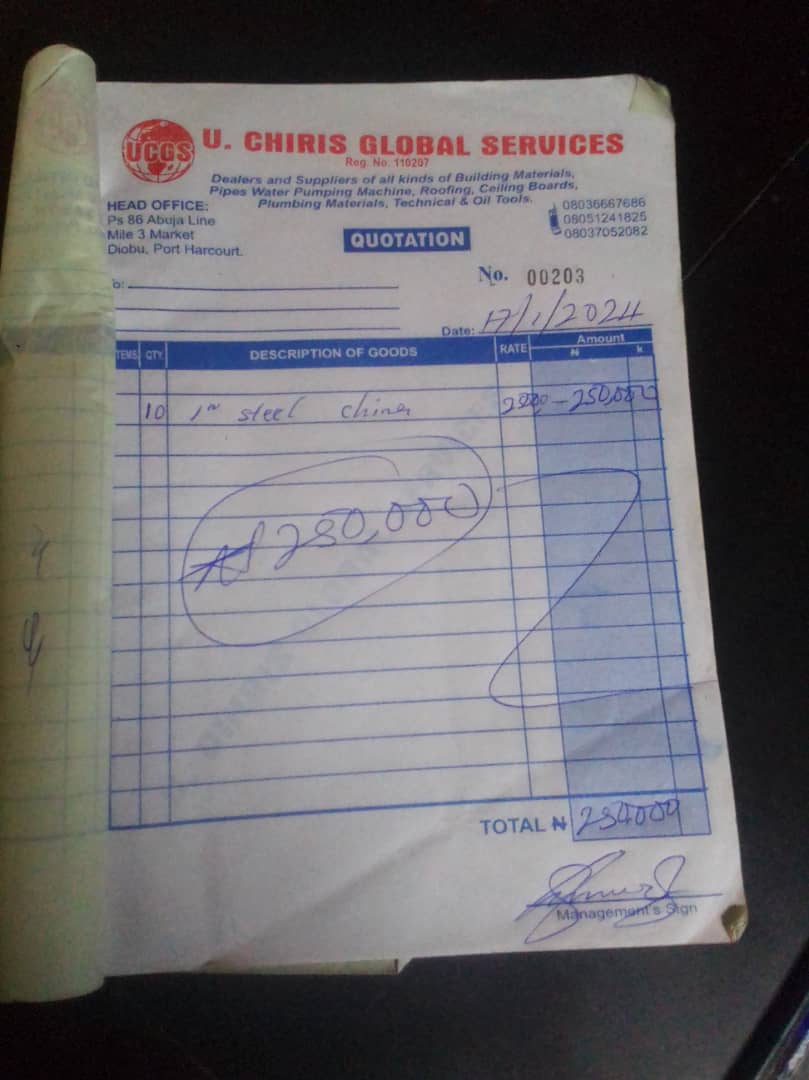 UCGS
U. CHIRIS GLOBAL SERVICES
Reg. No. 110207
Dealers and Suppliers of all kinds of Building Materials,
Pipes Water Pumping Machine, Roofing, Ceiling Boards,
Plumbing Materials, Technical & Oil Tools.
HEAD OFFICE:
Ps 86 Abuja Line
Mile 3 Market
Diobu, Port Harcourt.
08036667686
08051241825
08037052082
QUOTATION
No. 00203
Date: 17/1/2024
QTY. DESCRIPTION OF GOODS RATE Amount
₦ k
10 1" steel 250,000
₦250,000
TOTAL ₦
Management's Sign